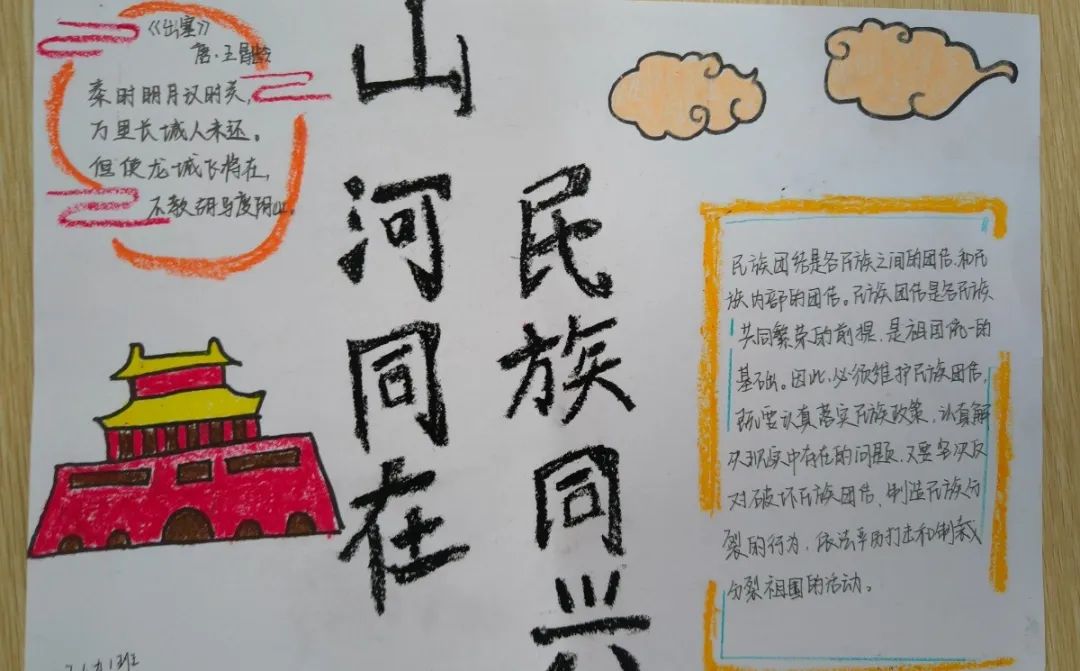 《出塞》
唐·王昌龄
秦时明月汉时关,
万里长城人未还。
但使龙城飞将在,
不教胡马度阴山。
山河同在
民族同兴
民族团结是各民族之间的团结和民
族内部的团结。民族团结是各民族
共同繁荣的前提,是祖国统一的
基础。因此,必须维护民族团结,
既要认真落实民族政策,认真解
决现实中存在的问题,又要坚决反
对破坏民族团结,制造民族分
裂的行为,依法严厉打击和制裁
分裂祖国的活动。
班